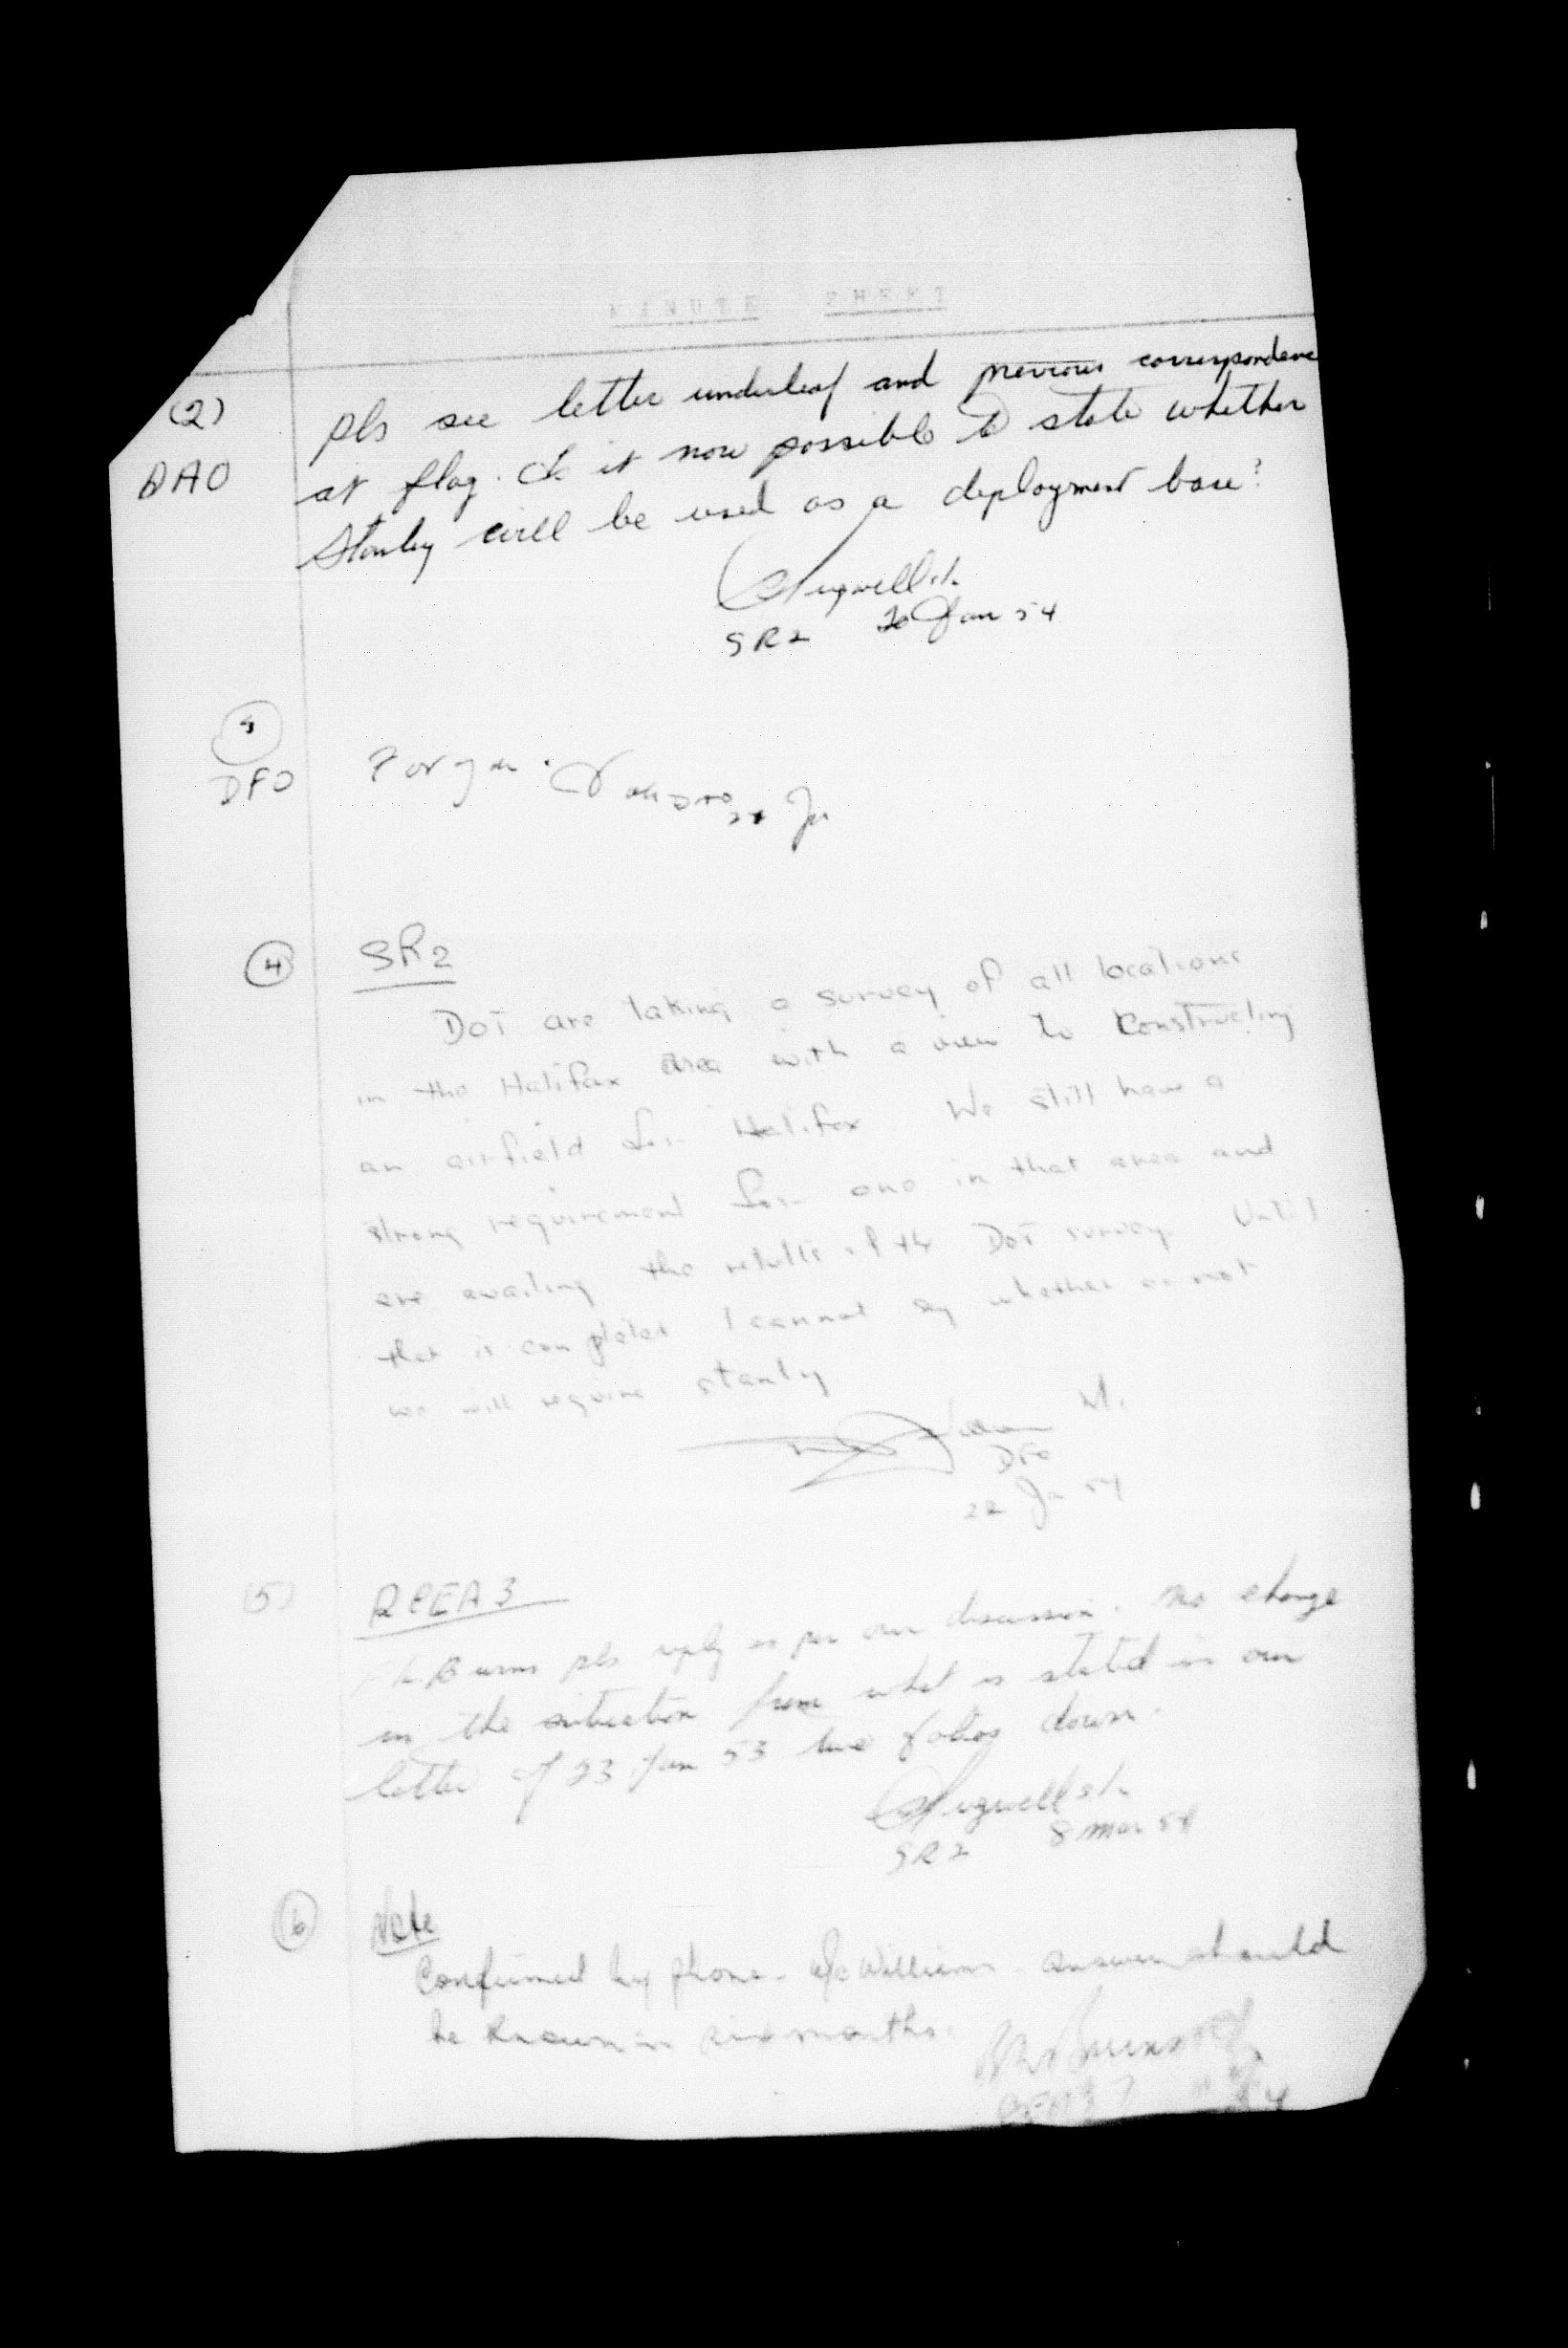 MINUTE SHEET
(2) pls see letter underleaf and previous correspondence
DAO at flag. Is it now possible to state whether
Stanley will be used as a deployment base?
SR2 20 Jan 54
DFO For you.
(4) SR2
DOT are taking a survey of all locations
in the Halifax area with a view to constructing
an airfield for Halifax. We still have a
strong requirement for one in that area and
are awaiting the results of the DOT survey. Until
that is completed I cannot say whether or not
we will require Stanley
DFO
22 Ja 54
(5)
Burns pls reply as per our discussion. No change
in the situation from what is stated in our
letter of 23 Jan 53 two folios down.
SR2 8 Mar 54
(6) Note
Confirmed by phone - Williams - answer should
be known in six months.